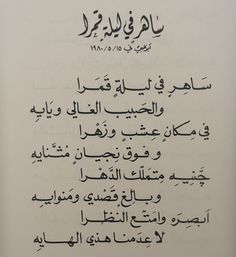 ساهر في ليلة قمرا
أبوظبي في ١٩٨٠/٥/١٥
ساهرٍ في ليلةٍ قَمَرا
والحَبيب الغالي ويَايِه
في مِكانٍ عِشبٍ وزَهْرا
وفوق نِجيانٍ مْثنايه
چَنِّيه مِتمَلّك الدَّهرا
وبالغٍ قَصْدي ومَنوايه
ابصِرَه وامتَع النظرا
لا عِدمنا هذي الهايه